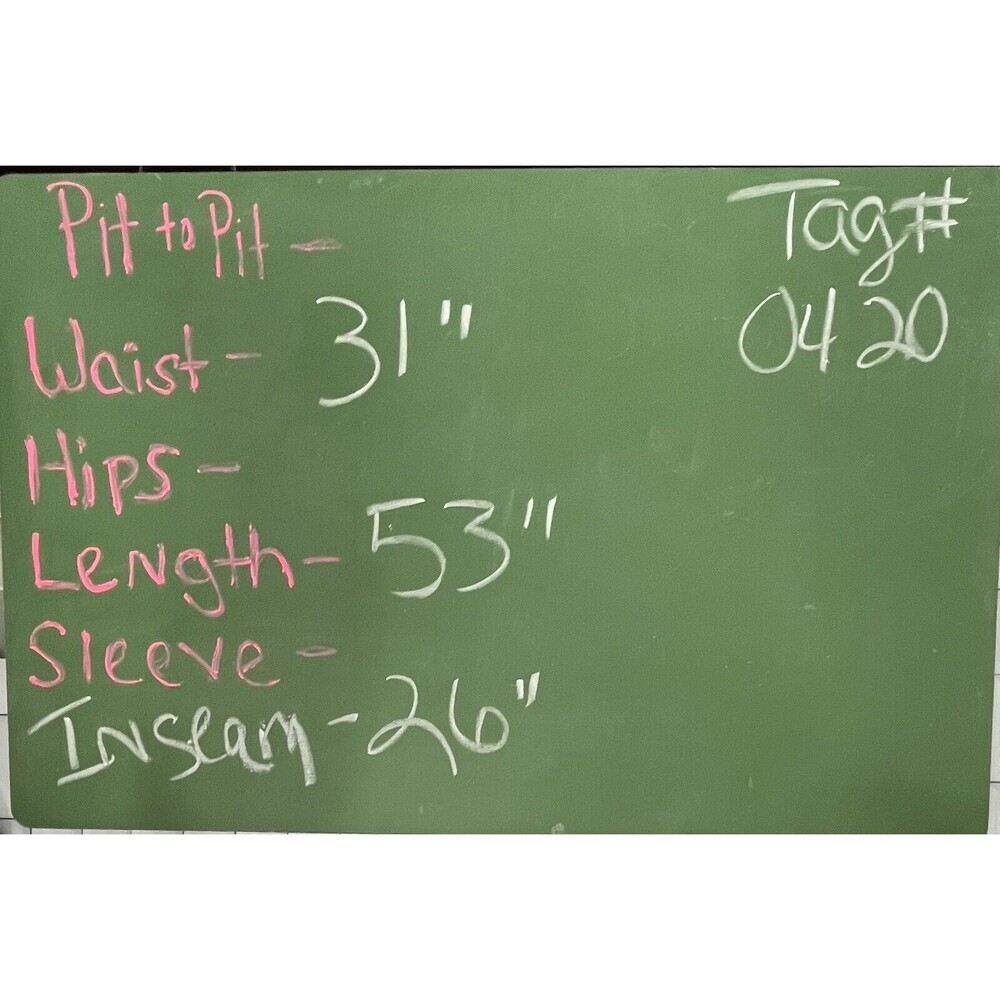 Pit to Pit -
Tag#
0420
Waist - 31"
Hips -
Length - 53"
Sleeve -
Inseam - 26"